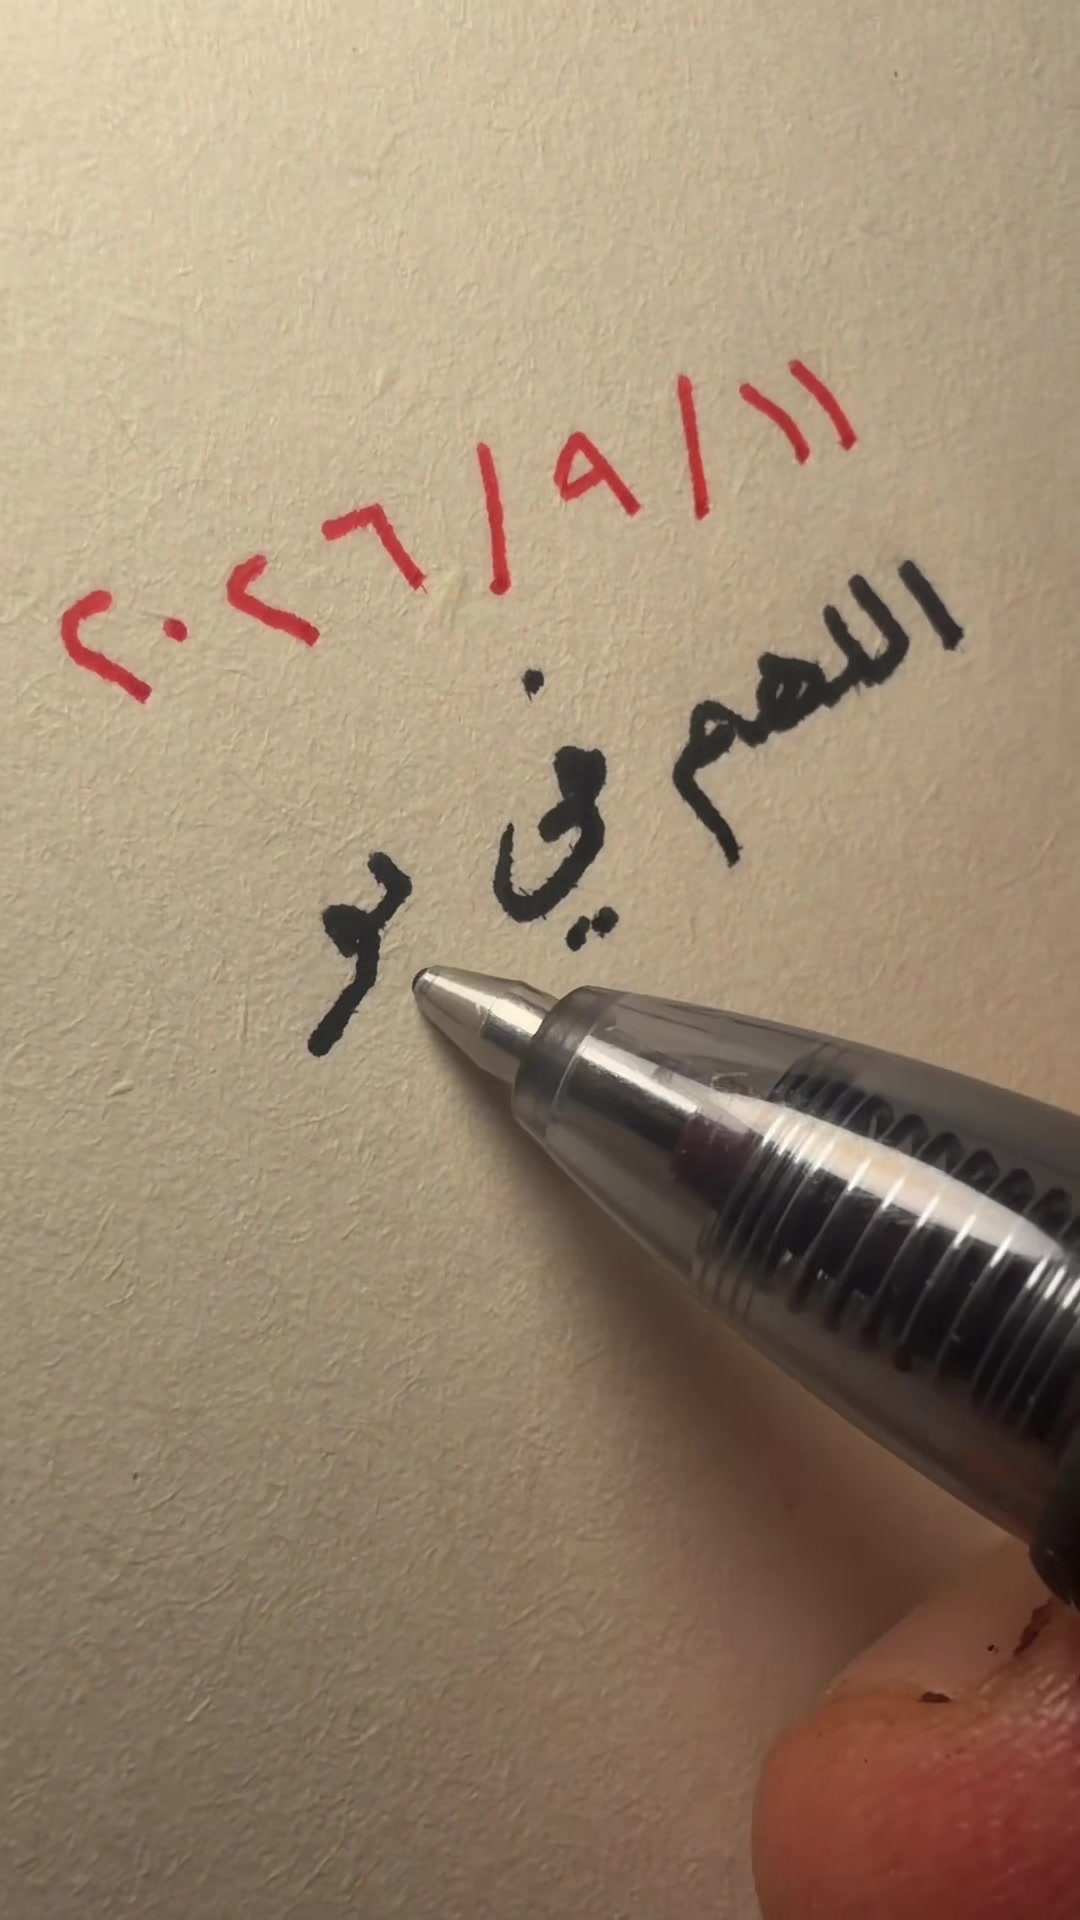 ٢٠٢٦/٩/١١
اللهم في